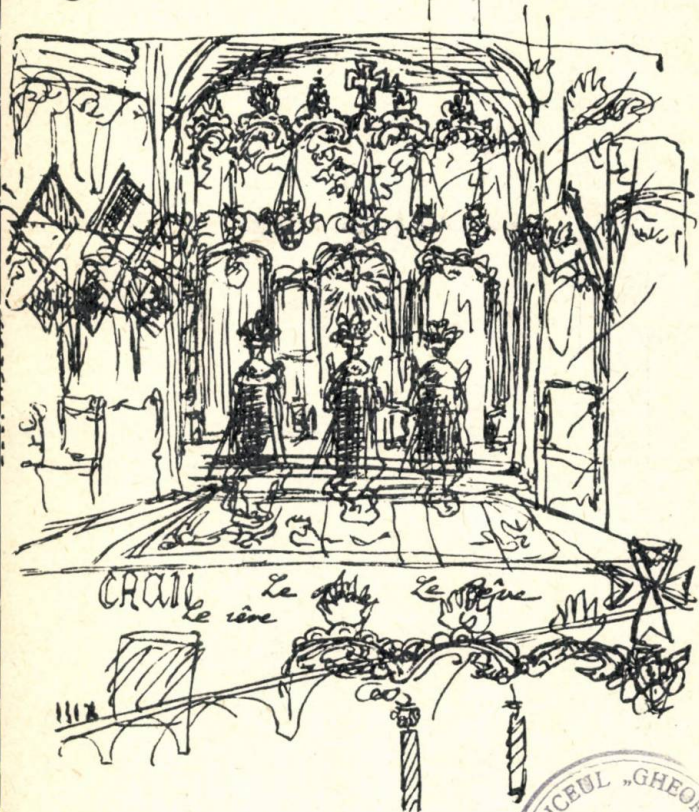 CRAII
Le rêve
Le
Le rêve
LICEUL „GHEO